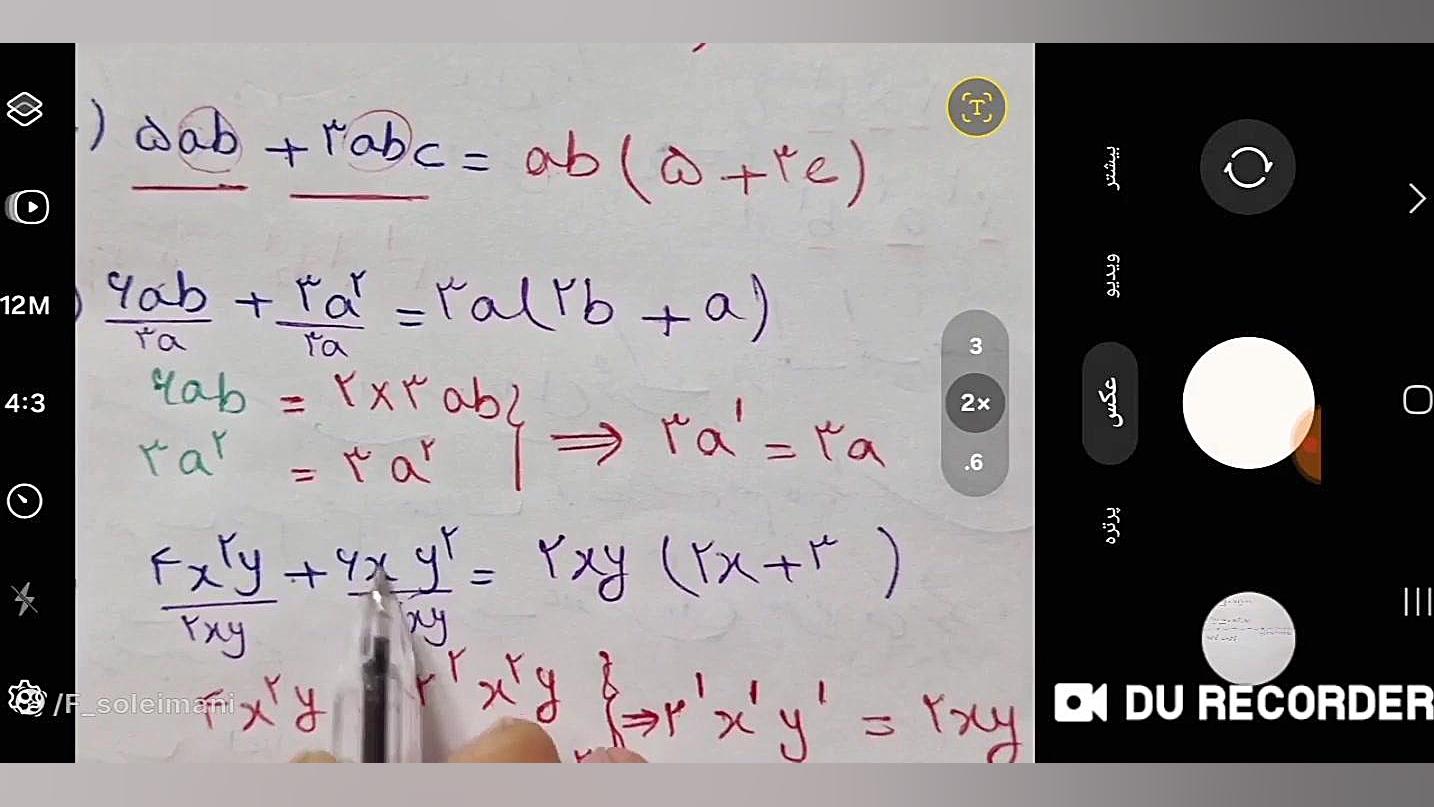 ) ۵ab + ۳abc = ab ( ۵ + ۳c )
) ۶ab + ۳a² = ۳a ( ۲b + a )
۳a ۳a
۶ab = ۲×۳ab } ⇒ ۳a¹ = ۳a
۳a² = ۳a²
۴x²y + ۶xy² = ۲xy ( ۲x + ۳ )
۲xy xy
۴x²y ۲² x²y } ⇒ ۲¹x¹y¹ = ۲xy
/F_soleimani
12M
4:3
3
2×
.6
بیشتر
ویدیو
عکس
پرتره
T
DU RECORDER